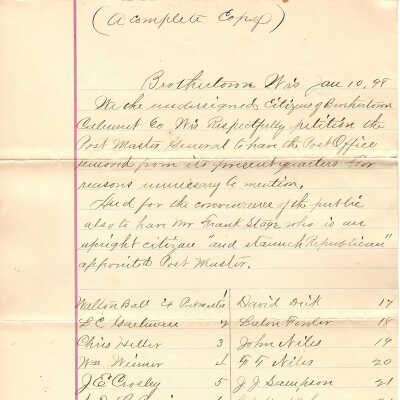 (A complete Copy)
Brothertown Wis Jan 10, 98
We the undersigned Citizens of Brothertown
Calumet Co. Wis Respectfully petition the
Post Master General to have the Post Office
removed from its present quarters For
reasons unnecessary to mention.
And for the convenience of the public
also to have Mr Frank Stage who is an
upright citizen and staunch "Republican"
appointed Post Master.
Ball 1 David Dick 17
L. E. 2 Fowler 18
Chris Heller 3 John Niles 19
Wm Winner 4 F F Niles 20
J E Crosley 5 J. J. Sampson 21